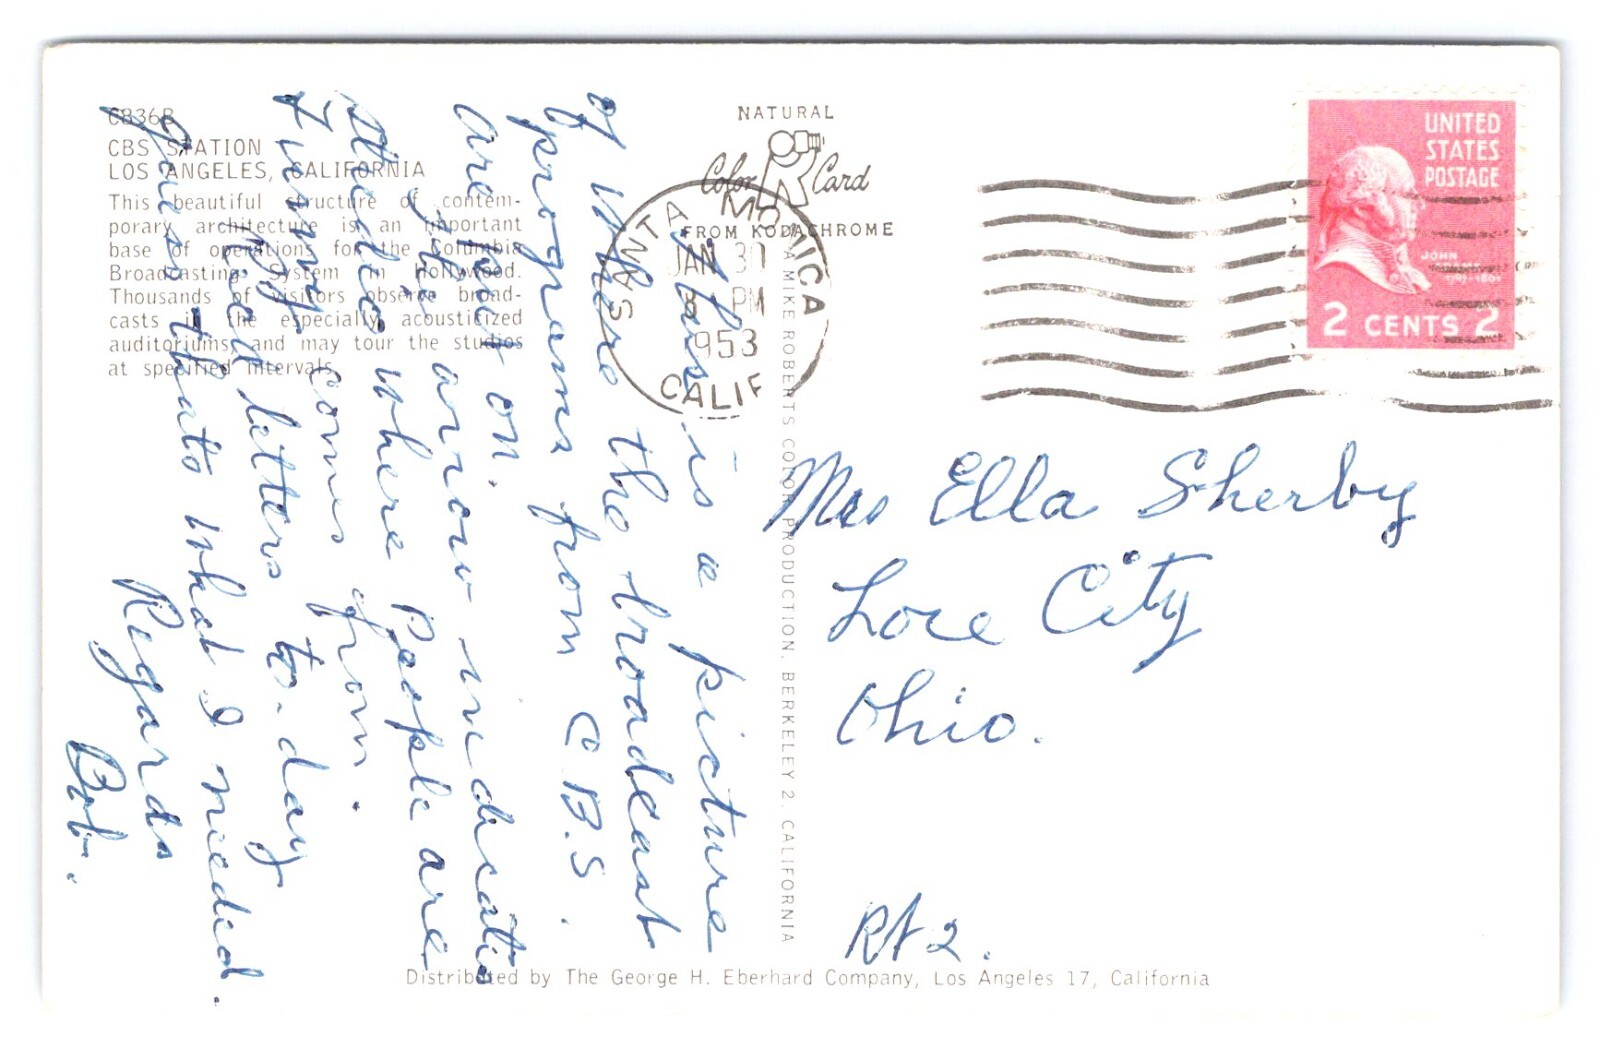 C836B
CBS STATION
LOS ANGELES, CALIFORNIA
This beautiful structure of contem-
porary architecture is an important
base of operations for the Columbia
Broadcasting System in Hollywood.
Thousands of visitors observe broad-
casts in the especially acousticized
auditoriums, and may tour the studios
at specified intervals.
NATURAL
Color Card
FROM KODACHROME
SANTA MONICA
JAN 30
8 PM
1953
CALIF
UNITED
STATES
POSTAGE
JOHN
ADAMS
1797-1801
2 CENTS 2
A MIKE ROBERTS COLOR PRODUCTION, BERKELEY 2, CALIFORNIA
This is a picture
of where the broadcast
programs from C.B.S.
are put on.
The arrow indicates
studio where People are
Funny comes from.
Red letters to-day
Guess thats what I needed.
Regards
Bob.
Mrs Ella Sherby
Lore City
Ohio.
Rt 2.
Distributed by The George H. Eberhard Company, Los Angeles 17, California